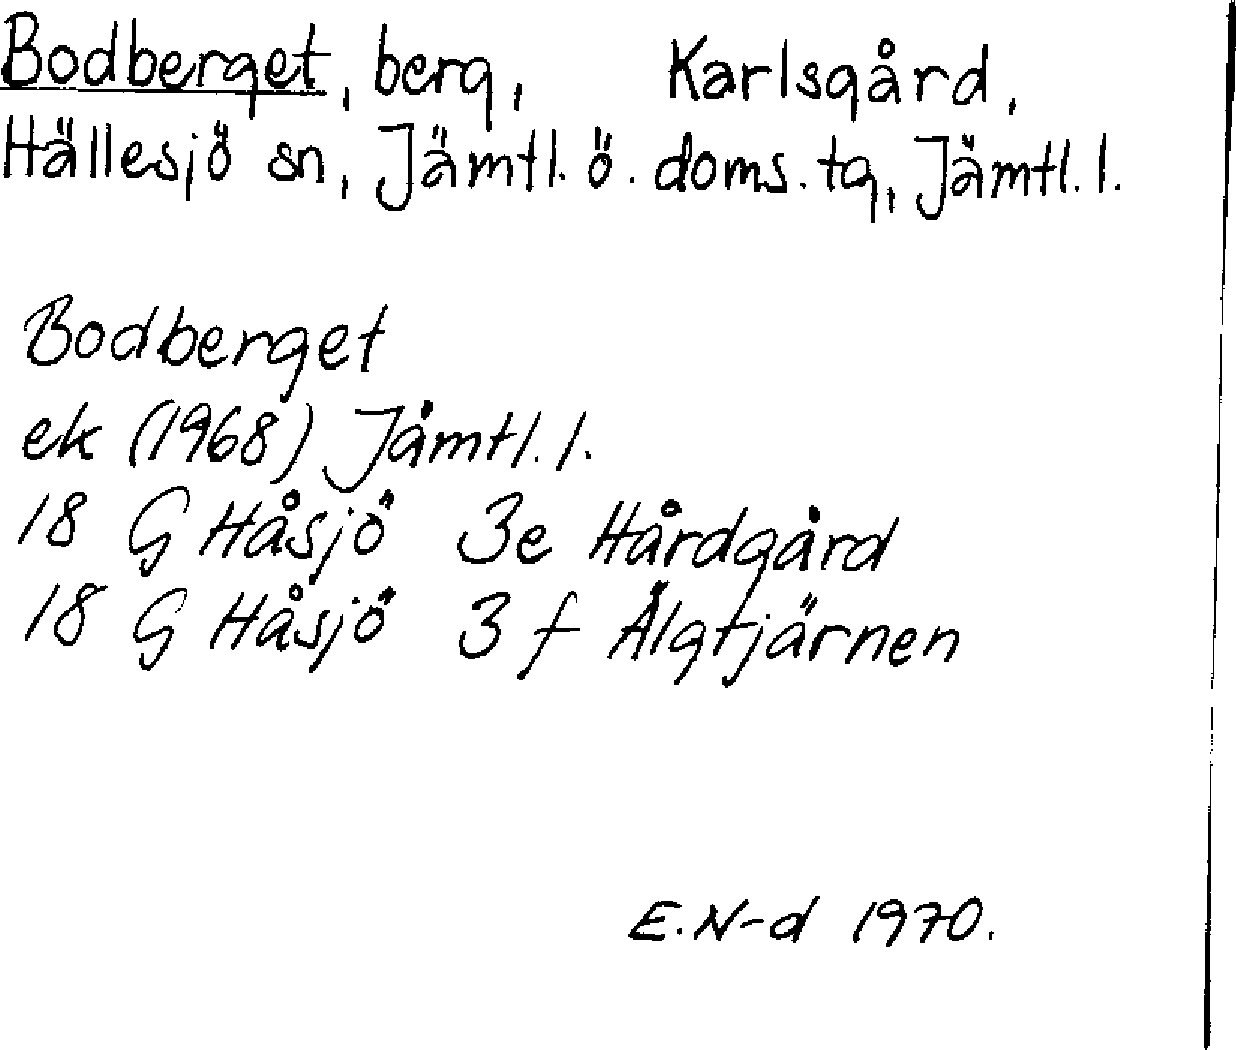 Bodberget, berg, Karlsgård,
Hällesjö sn, Jämtl. ö. doms. tg, Jämtl. l.
Bodberget
ek (1968) Jämtl. l.
18 G Håsjö 3e Hårdgård
18 G Håsjö 3f Älgtjärnen
E. N-d 1970.